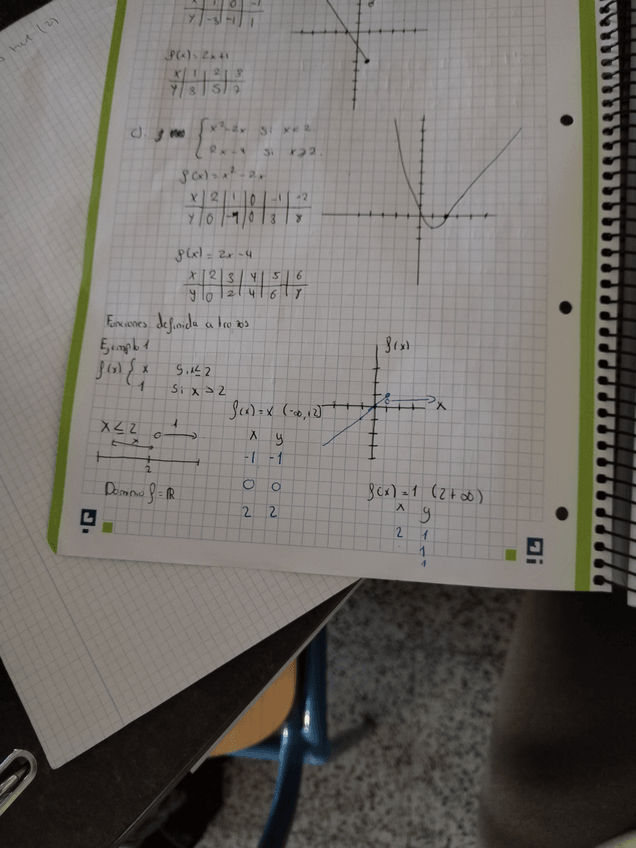 X | 1 | 0 | -1
Y | -3 | -1 | 1
f(x) = 2x+1
X | 1 | 2 | 3
Y | 3 | 5 | 7
c). f { x²-2x si x<2
2x-4 si x≥2.
f(x) = x² - 2x
X | 2 | 1 | 0 | -1 | -2
Y | 0 | -1 | 0 | 3 | 8
f(x) = 2x-4
X | 2 | 3 | 4 | 5 | 6
Y | 0 | 2 | 4 | 6 | 8
Funciones definida a trozos
Ejemplo 1
f(x) { x si x≤2
1 si x > 2
f(x)
x
X ≤ 2
x
1
2
Dominio f = ℝ
f(x) = x (-∞,+2)
x y
-1 -1
0 0
2 2
f(x) = 1 (2+∞)
x y
2 1
1
1